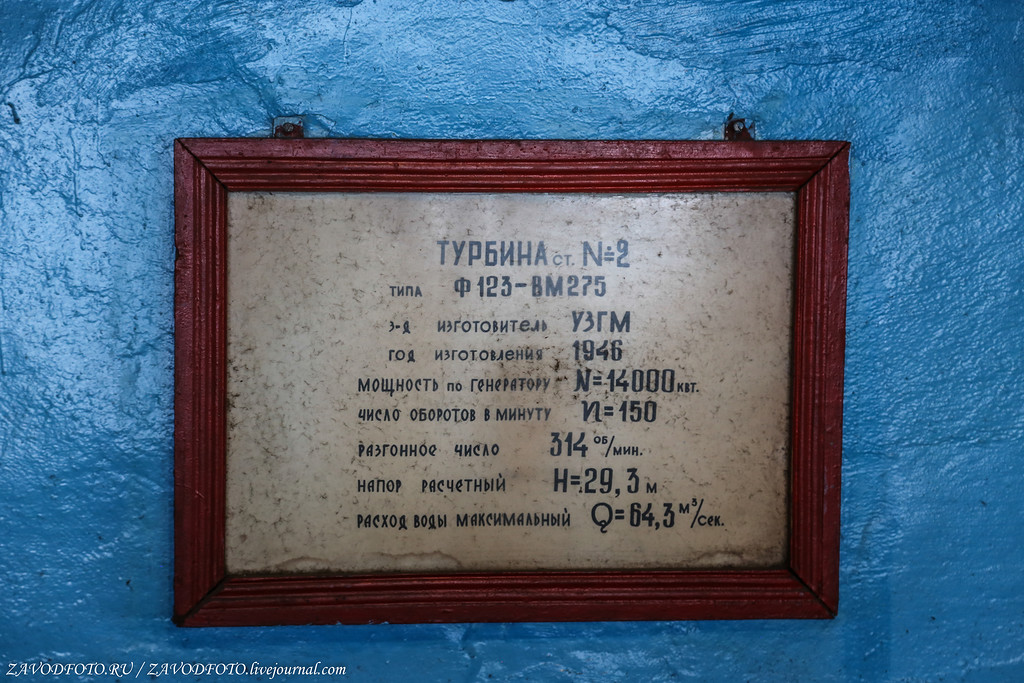 ТУРБИНА ст. №2
ТИПА Ф123-ВМ275
з-д изготовитель УЗГМ
год изготовления 1946
мощность по генератору N=14000квт.
число оборотов в минуту n=150
разгонное число 314 об/мин.
напор расчетный H=29,3 м
расход воды максимальный Q=64,3 м³/сек.
ZAVODFOTO.RU / ZAVODFOTO.livejournal.com